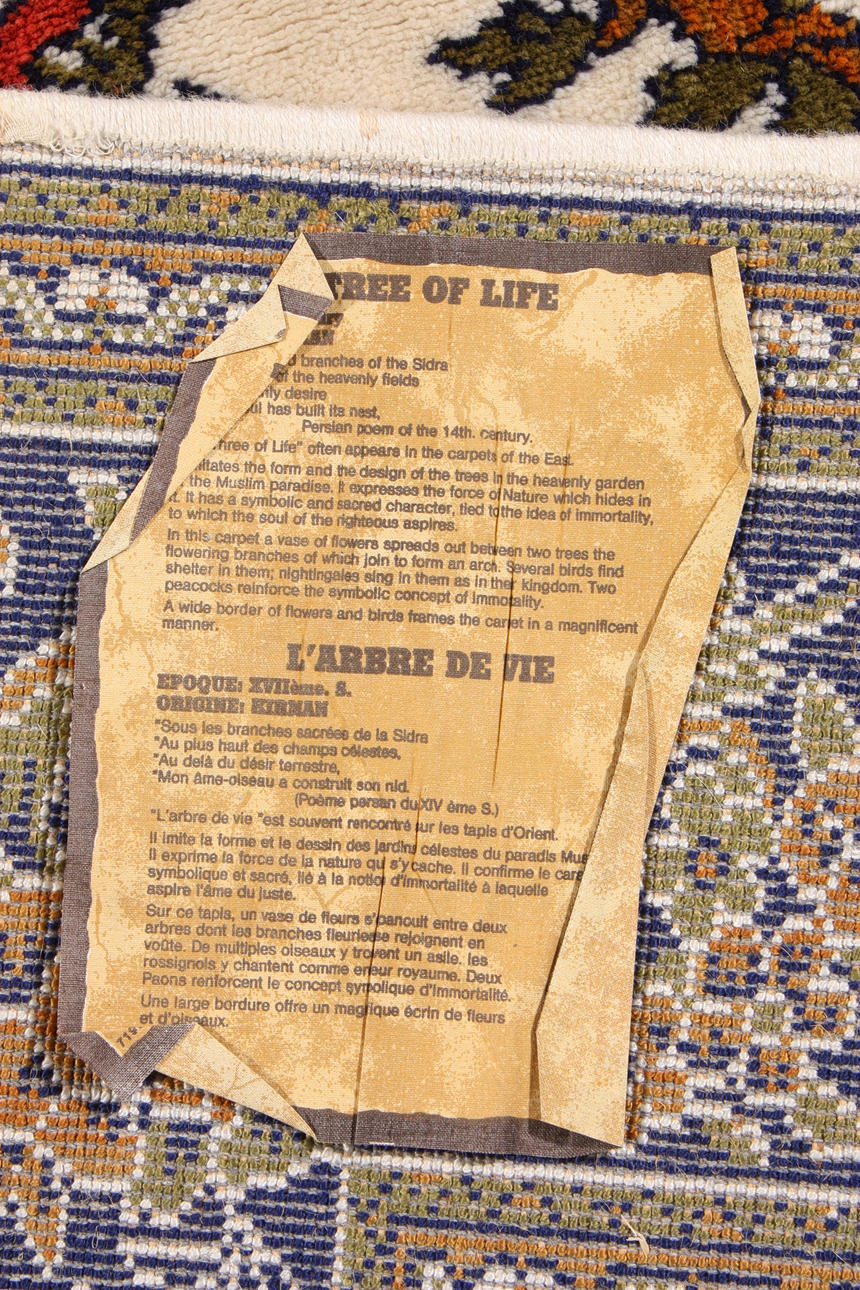 TREE OF LIFE
branches of the Sidra
of the heavenly fields
desire
has built its nest,
Persian poem of the 14th. century.
"Three of Life" often appears in the carpets of the East.
the form and the design of the trees in the heavenly garden
the Muslim paradise. It expresses the force of Nature which hides in
it. It has a symbolic and sacred character, tied to the idea of immortality,
to which the soul of the righteous aspires.
In this carpet a vase of flowers spreads out between two trees the
flowering branches of which join to form an arch. Several birds find
shelter in them; nightingales sing in them as in their kingdom. Two
peacocks reinforce the symbolic concept of immortality.
A wide border of flowers and birds frames the carpet in a magnificent
manner.
L'ARBRE DE VIE
EPOQUE: XVIIème. S.
ORIGINE: KIRMAN
"Sous les branches sacrées de la Sidra
"Au plus haut des champs célestes,
"Au delà du désir terrestre,
"Mon âme-oiseau a construit son nid.
(Poème persan du XIV ème S.)
"L'arbre de vie "est souvent rencontré sur les tapis d'Orient.
Il imite la forme et le dessin des jardins célestes du paradis Mus
Il exprime la force de la nature qui s'y cache. Il confirme le cara
symbolique et sacré, lié à la notion d'immortalité à laquelle
aspire l'âme du juste.
Sur ce tapis, un vase de fleurs s'panouit entre deux
arbres dont les branches fleuries se rejoignent en
voûte. De multiples oiseaux y trouvent un asile. les
rossignols y chantent comme en leur royaume. Deux
Paons renforcent le concept symbolique d'immortalité.
Une large bordure offre un magnifique écrin de fleurs
et d'oiseaux.
719